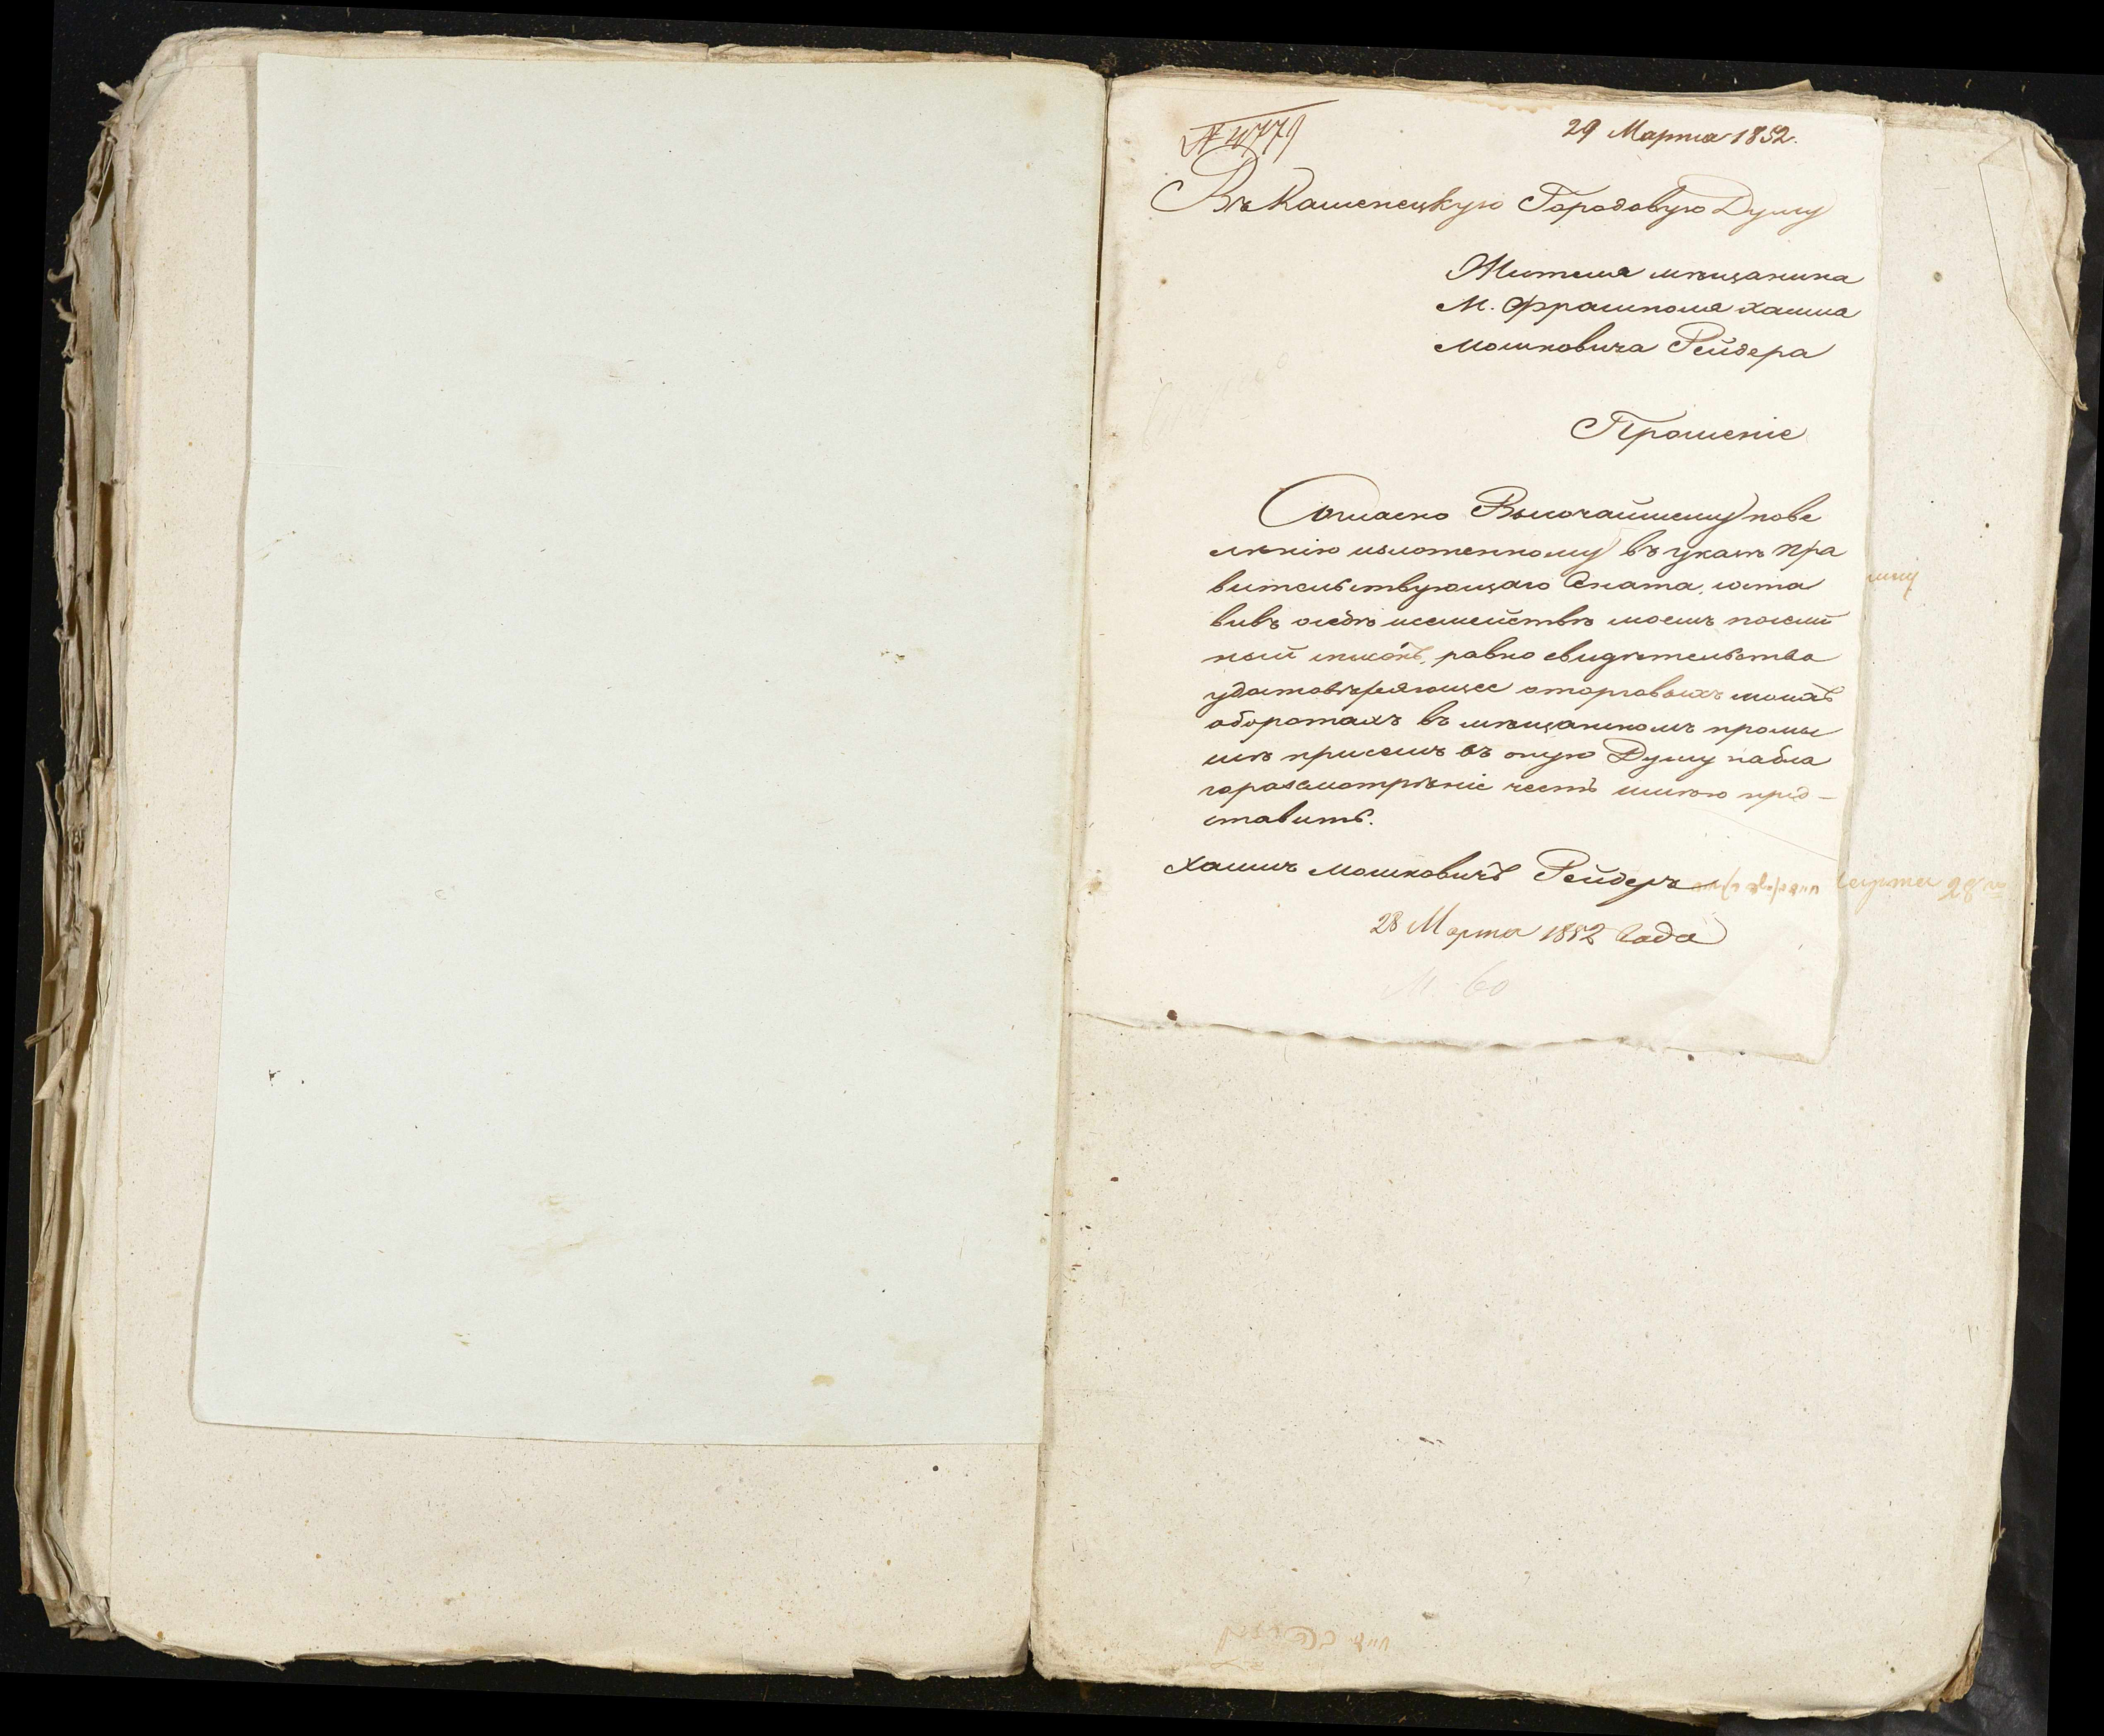 № 4779
29 Марта 1852.
Въ Каменецкую Городовую Думу
Жителя мѣщанина
М. Фрампола Хаима
Мошковича Рейдера
Прошеніе
Согласно Высочайшему пове
лѣнію изложенному въ указѣ Пра
вительствующаго Сената, соста
вивъ о себѣ и семействѣ моемъ посемей
ный списокъ, равно свидѣтельства
удостовѣряющее о торговыхъ моихъ
оборотахъ въ мѣщанскомъ промы
слѣ при семъ въ оную Думу на бла
горазсмотрѣніе честь имѣю пред-
ставить.
Хаимъ Мошковичъ Рейдеръ
28 Марта 1852 Года
М. 60